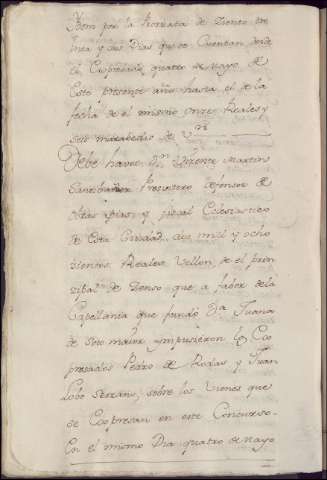 Ittem por la Prorrata de Ziento tre
inta y dos Dias que se Cuentan desde
el Expresado quatro de Mayo de
este presente año hasta el de la
fecha de el mismo onze Reales y
seis marabedis de Vn
Debe haver Dn Vizente Martins
Santibañez Presvitero defensor de
obras pias, y fiscal Eclesiastico
de esta Ciudad, dos mil y ocho
zientos Reales Vellon, de el prin
zipal de Zenso que a fabor de la
Capellania que fundó Da Juana
de Soto maior ympusieron los Ex
presados Pedro de Rojas y Juan
Lobo Serrano, sobre los Vienes que
se Expresan en este Concurso.
En el mismo Dia quatro de mayo